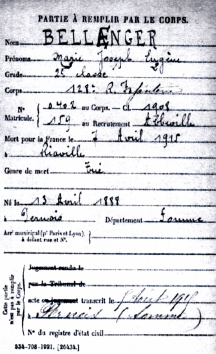 PARTIE À REMPLIR PAR LE CORPS.
Nom BELLENGER
Prénoms Marie Joseph Eugène
Grade 2e classe
Corps 128e R. Infanterie
N° 0402 au Corps. — Cl 1908
Matricule. 159 au Recrutement Abbeville
Mort pour la France le 7 Avril 1915
à Riaville
Genre de mort Tué
Né le 13 Avril 1888
à Pernois Département Somme
Arr municipal (pr Paris et Lyon)
à défaut rue et N°.
Cette partie n'est pas à remplir par le Corps.
Jugement rendu le
par le Tribunal de
acte ou jugement transcrit le
Pernois (Somme)
N° du registre d'état civil
534-708-1921. [26434.]